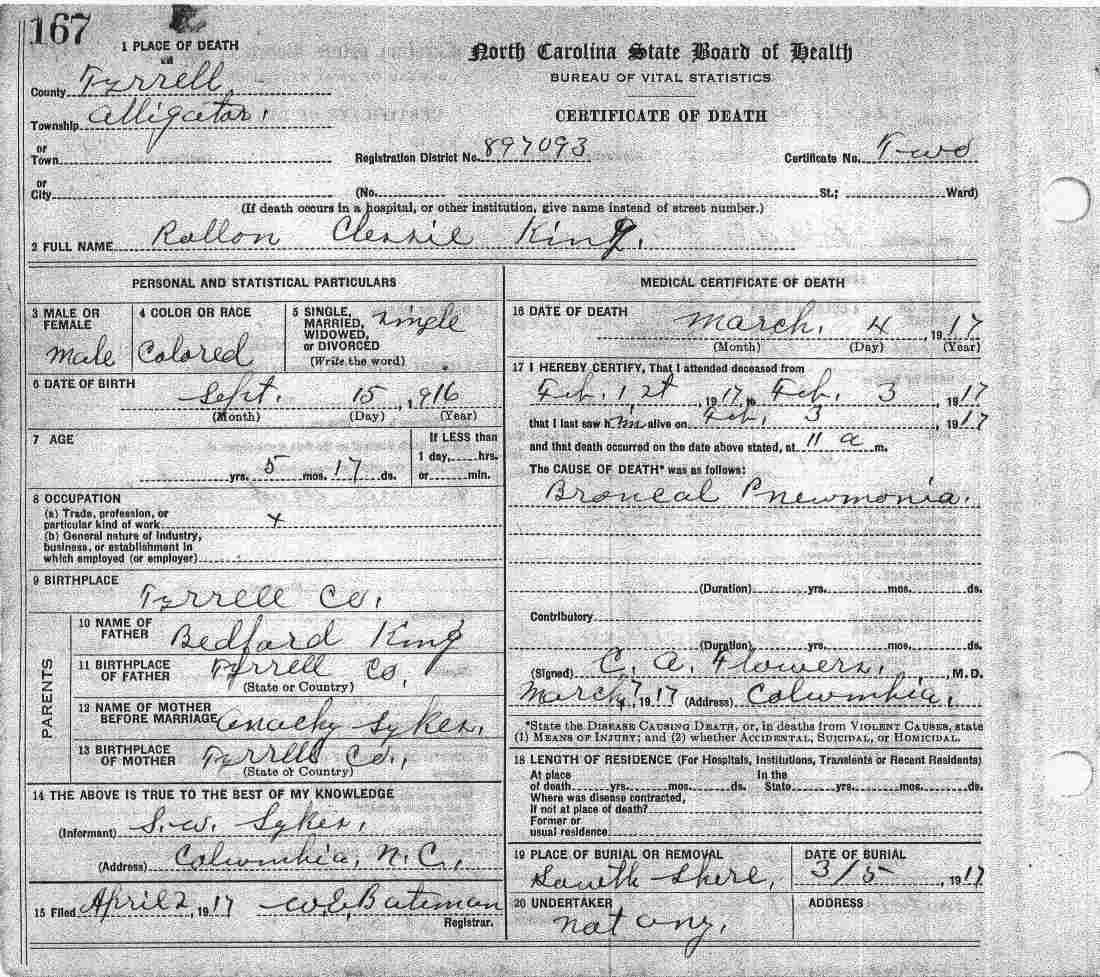 167
1 PLACE OF DEATH
North Carolina State Board of Health
BUREAU OF VITAL STATISTICS
CERTIFICATE OF DEATH
County Tyrrell
Township Alligator.
or
Town
Registration District No. 897093 Certificate No. Two
or
City (No. St.; Ward)
(If death occurs in a hospital, or other institution, give name instead of street number.)
2 FULL NAME Rollon Clessie King.
PERSONAL AND STATISTICAL PARTICULARS
3 MALE OR FEMALE
Male
4 COLOR OR RACE
Colored
5 SINGLE, MARRIED, WIDOWED, or DIVORCED
(Write the word)
single
6 DATE OF BIRTH
Sept. 15, 916
(Month) (Day) (Year)
7 AGE
yrs. 5 mos. 17 ds.
If LESS than
1 day, hrs.
or min.
8 OCCUPATION
(a) Trade, profession, or
particular kind of work x
(b) General nature of industry,
business, or establishment in
which employed (or employer)
9 BIRTHPLACE
Tyrrell Co.
PARENTS
10 NAME OF FATHER
Bedford King
11 BIRTHPLACE OF FATHER
Tyrrell Co.
(State or Country)
12 NAME OF MOTHER BEFORE MARRIAGE
Sykes.
13 BIRTHPLACE OF MOTHER
Tyrrell Co.,
(State or Country)
14 THE ABOVE IS TRUE TO THE BEST OF MY KNOWLEDGE
(Informant) S.W. Sykes,
(Address) Columbia, N.C.,
15 Filed April 2, 1917 Bateman
Registrar.
MEDICAL CERTIFICATE OF DEATH
16 DATE OF DEATH
March. 4, 1917
(Month) (Day) (Year)
17 I HEREBY CERTIFY, That I attended deceased from
Feb. 1st, 1917, to Feb. 3, 1917
that I last saw him alive on Feb. 3, 1917
and that death occurred on the date above stated, at 11 a m.
The CAUSE OF DEATH* was as follows:
Broncal Pnewmonia.
(Duration) yrs. mos. ds.
Contributory
(Duration) yrs. mos. ds.
(Signed) C. A. Flowers, M.D.
March 7, 1917 (Address) Columbia,
*State the DISEASE CAUSING DEATH, or, in deaths from VIOLENT CAUSES, state
(1) MEANS OF INJURY; and (2) whether ACCIDENTAL, SUICIDAL, or HOMICIDAL.
18 LENGTH OF RESIDENCE (For Hospitals, Institutions, Transients or Recent Residents)
At place In the
of death yrs. mos. ds. State yrs. mos. ds.
Where was disease contracted,
If not at place of death?
Former or
usual residence
19 PLACE OF BURIAL OR REMOVAL
DATE OF BURIAL
3/5, 1917
20 UNDERTAKER
not any.
ADDRESS